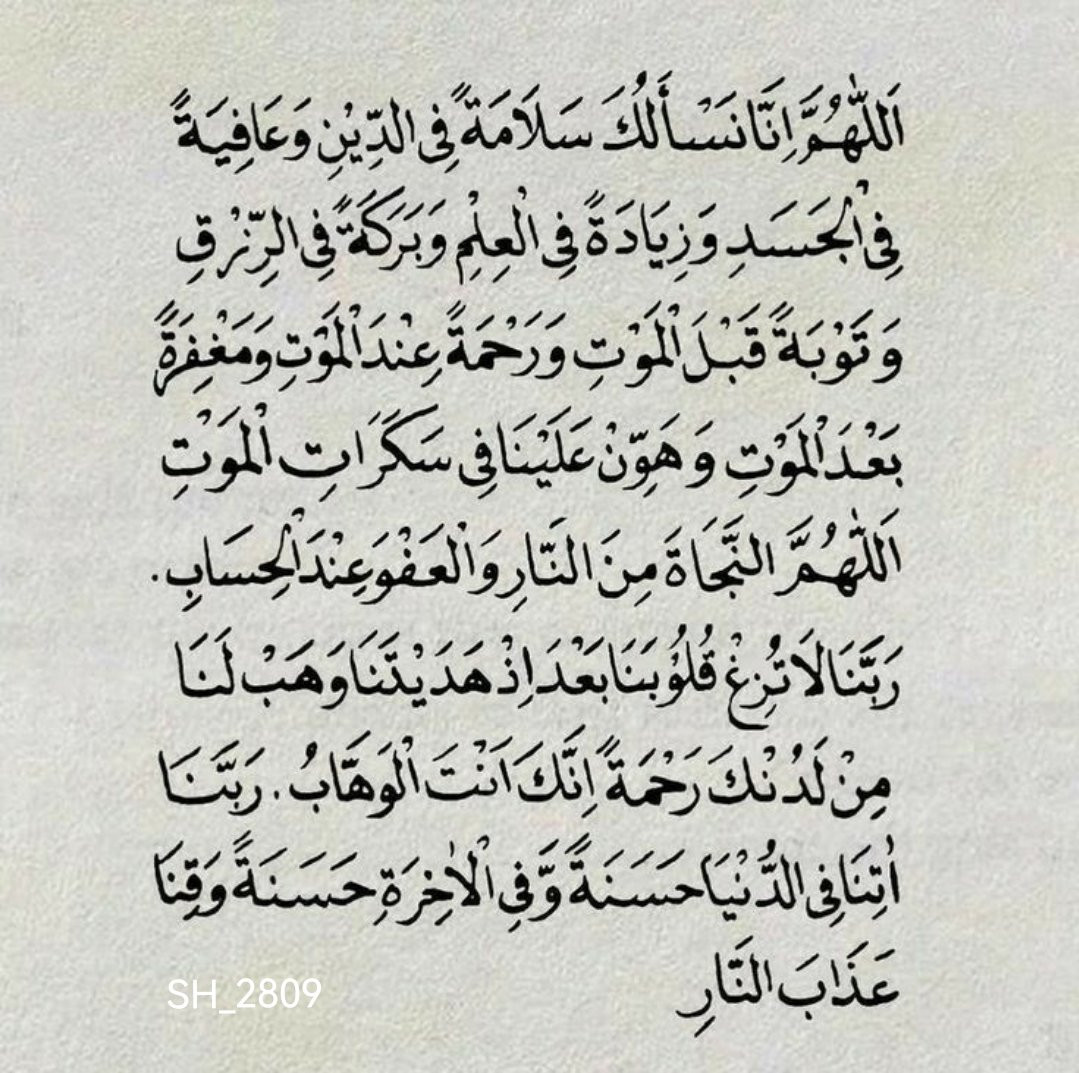 اَللّٰهُمَّ اِنَّا نَسْأَلُكَ سَلَامَةً فِى الدِّيْنِ وَعَافِيَةً
فِى الْجَسَدِ وَزِيَادَةً فِى الْعِلْمِ وَبَرَكَةً فِى الرِّزْقِ
وَتَوْبَةً قَبْلَ الْمَوْتِ وَرَحْمَةً عِنْدَ الْمَوْتِ وَمَغْفِرَةً
بَعْدَ الْمَوْتِ وَهَوِّنْ عَلَيْنَا فِى سَكَرَاتِ الْمَوْتِ
اَللّٰهُمَّ النَّجَاةَ مِنَ النَّارِ وَالْعَفْوَ عِنْدَ الْحِسَابِ.
رَبَّنَا لَا تُزِغْ قُلُوْبَنَا بَعْدَ اِذْ هَدَيْتَنَا وَهَبْ لَنَا
مِنْ لَدُنْكَ رَحْمَةً اِنَّكَ اَنْتَ الْوَهَّابُ. رَبَّنَا
اٰتِنَا فِى الدُّنْيَا حَسَنَةً وَّفِى الْاٰخِرَةِ حَسَنَةً وَقِنَا
عَذَابَ النَّارِ
SH_2809